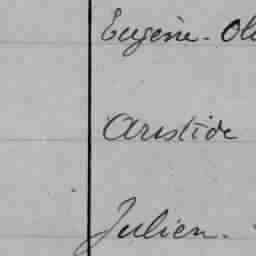 Eugène - Ol
Aristide
Julien.